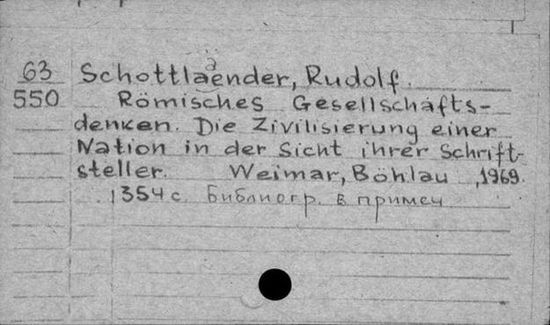 63 Schottlaender, Rudolf.
550 Römisches Gesellschafts-
denken. Die Zivilisierung einer
Nation in der Sicht ihrer Schrift-
steller. Weimar, Böhlau, 1969.
354 с. Библиогр. в примеч